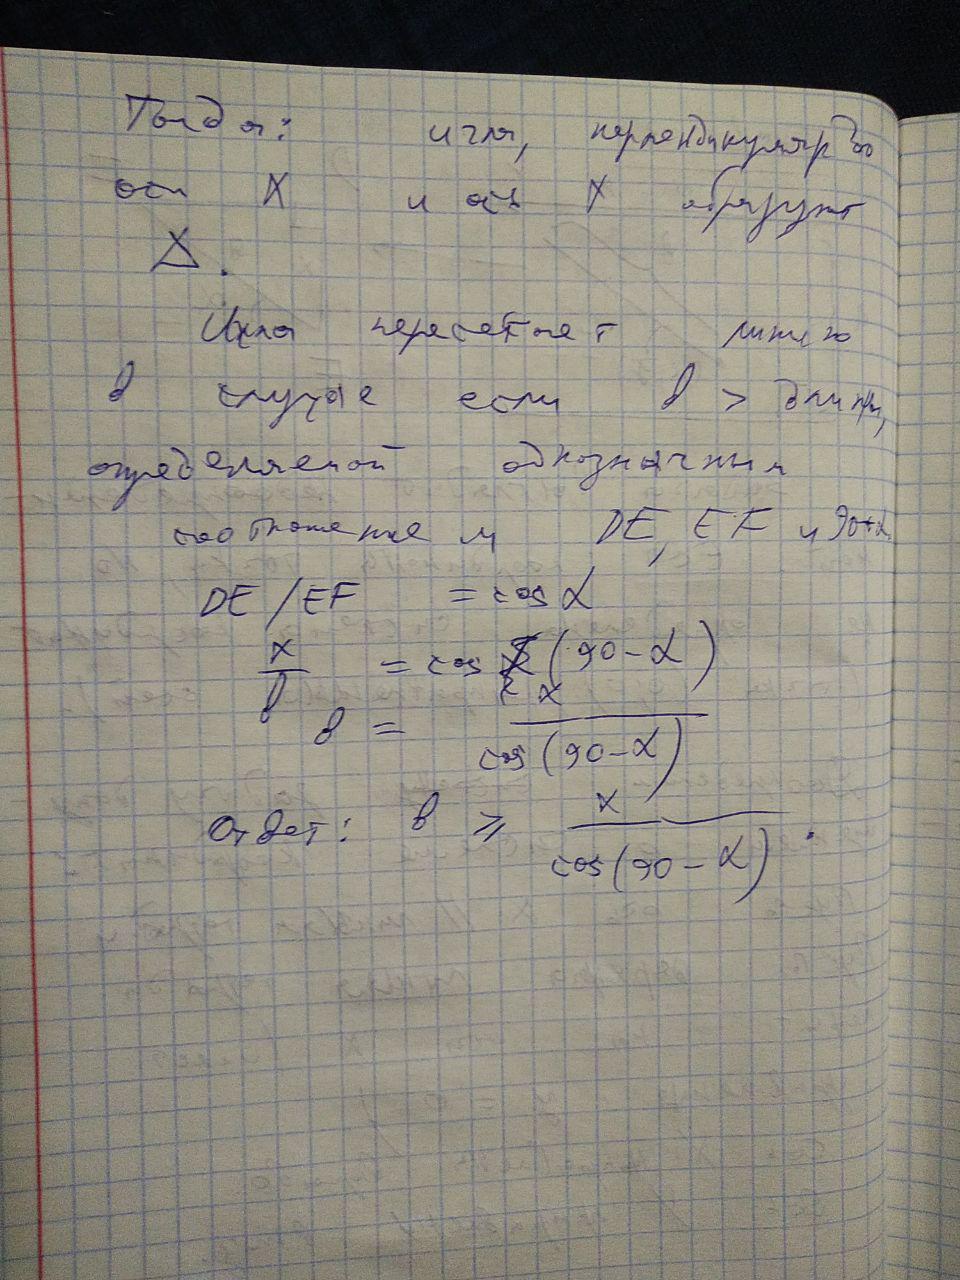 Тогда: игла, перпендикуляр до
оси X и ось X образуют
△.
Игла пересекает линию
в случае если l > длины,
определяемой однозначным
соотношением DE, EF и 90+α.
DE/EF = cos α
x/l = cos (90-α)
l = x/cos(90-α)
Ответ: l ⩾ x/cos(90-α).